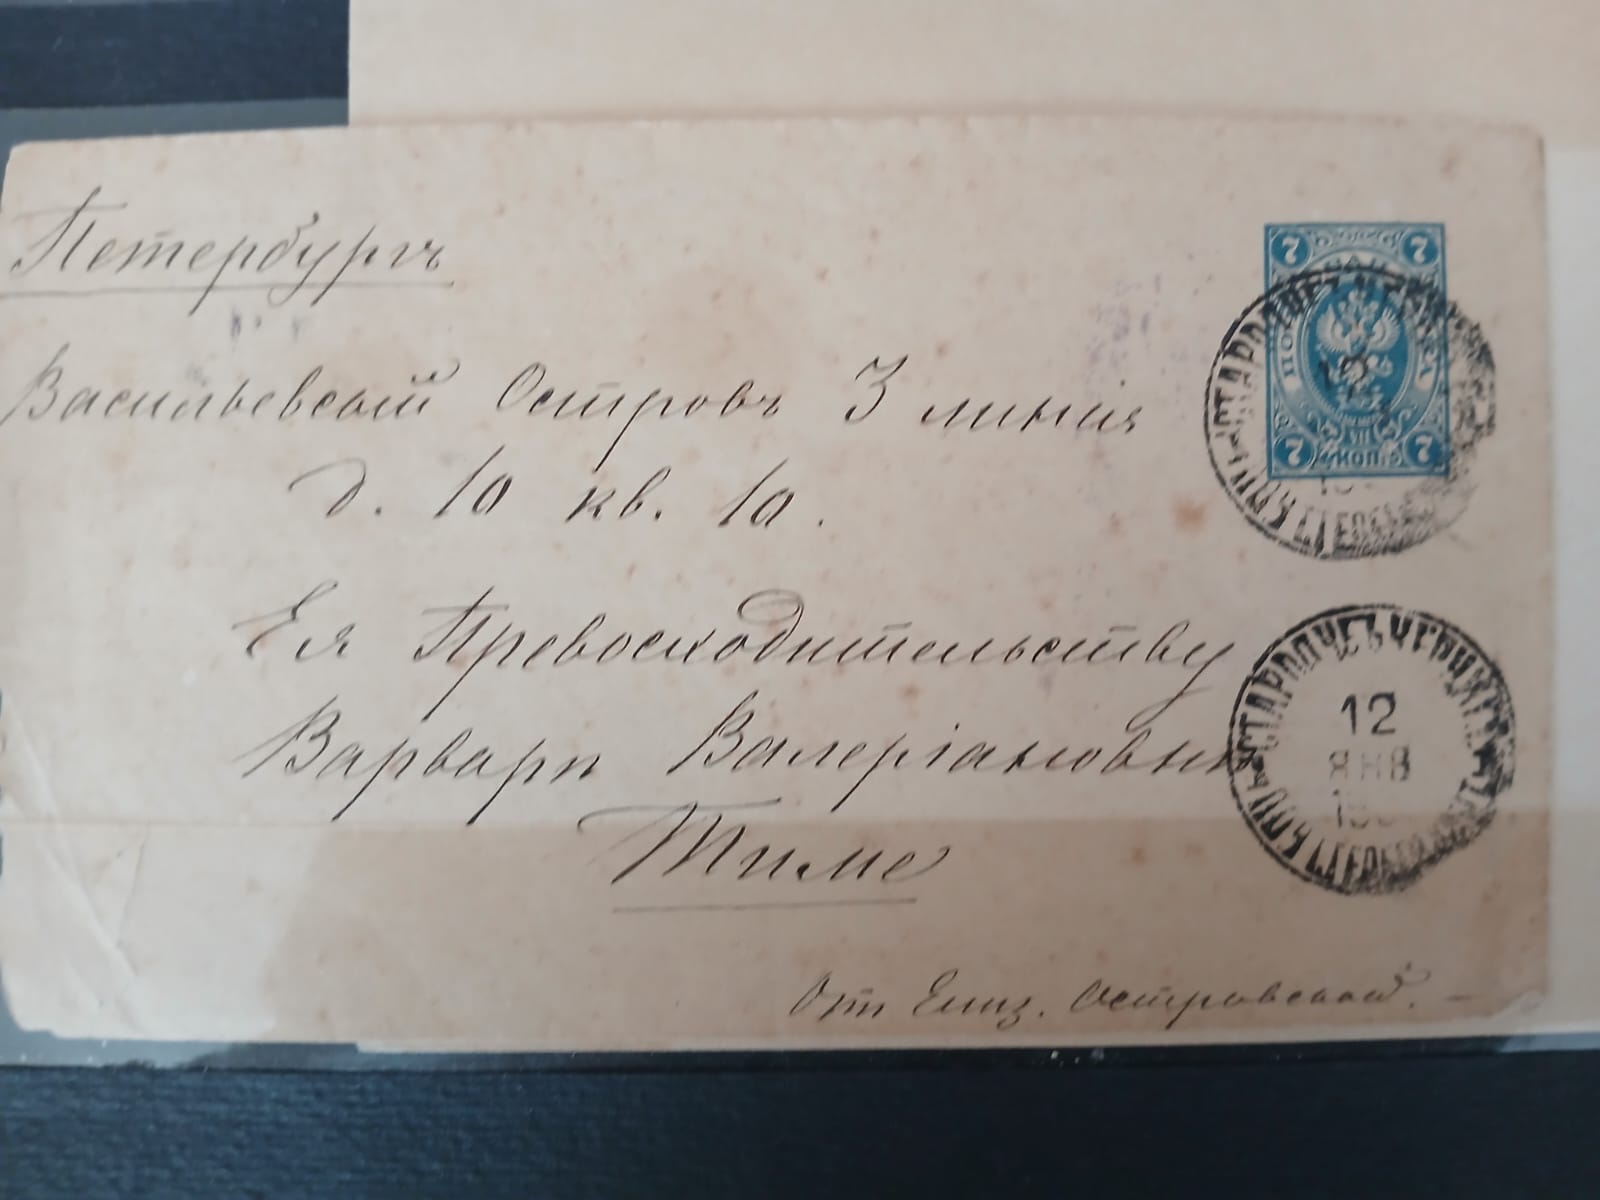 Петербургъ
Васильевскій Островъ 3 линія
д. 10 кв. 10.
Ея Превосходительству
Варварѣ Валеріановнѣ
Тиме
От Елиз. Островской.
7 7
ПОЧТОВАЯ МАРКА
7 КОП. 7
12
ЯНВ